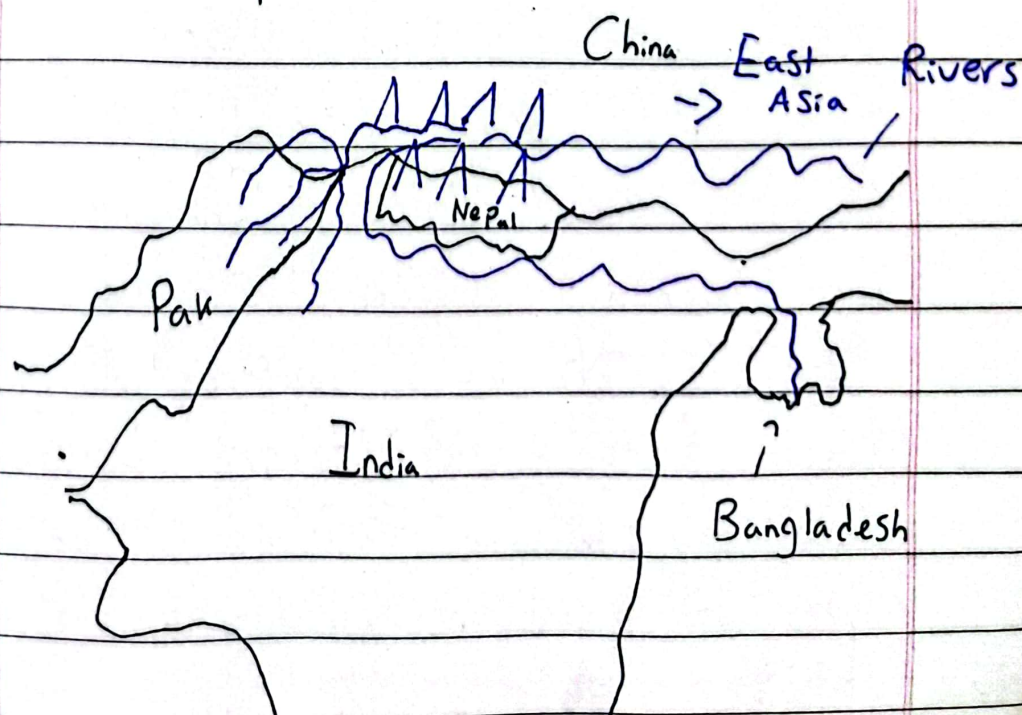 China
East
Asia
Rivers
Nepal
Pak
India
Bangladesh